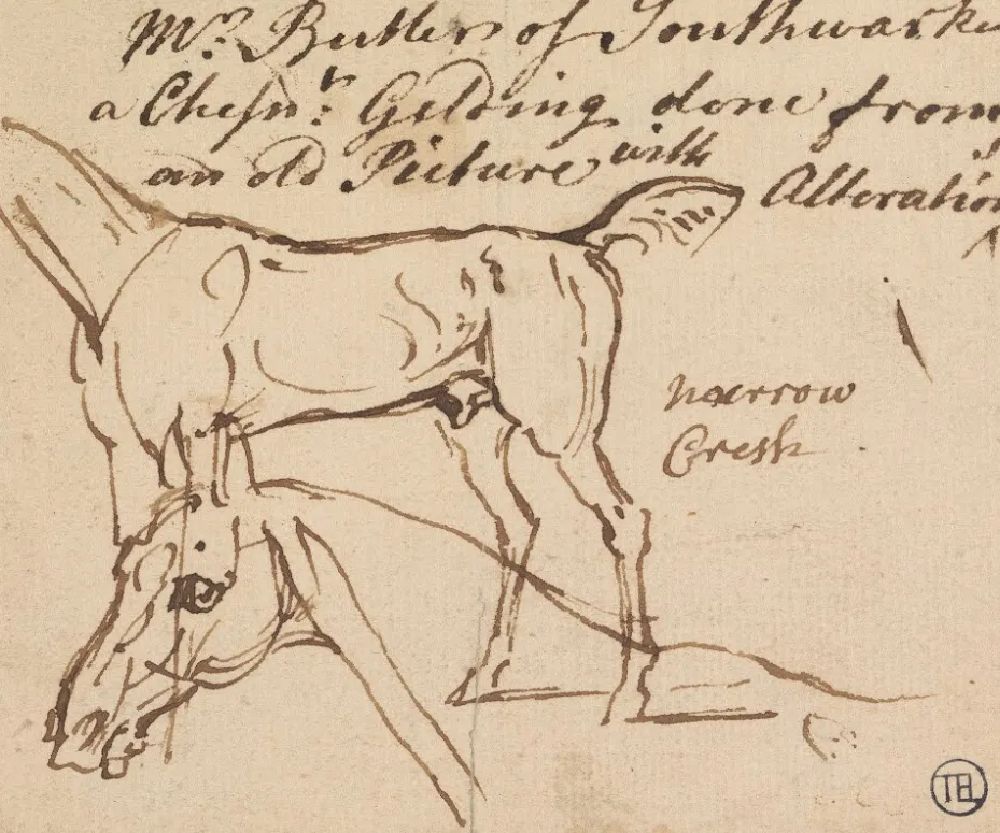 Mr. Butler of Southwark
a Chesnt: Gelding done from
an old Picture with Alteration
narrow
Cresh
TEL